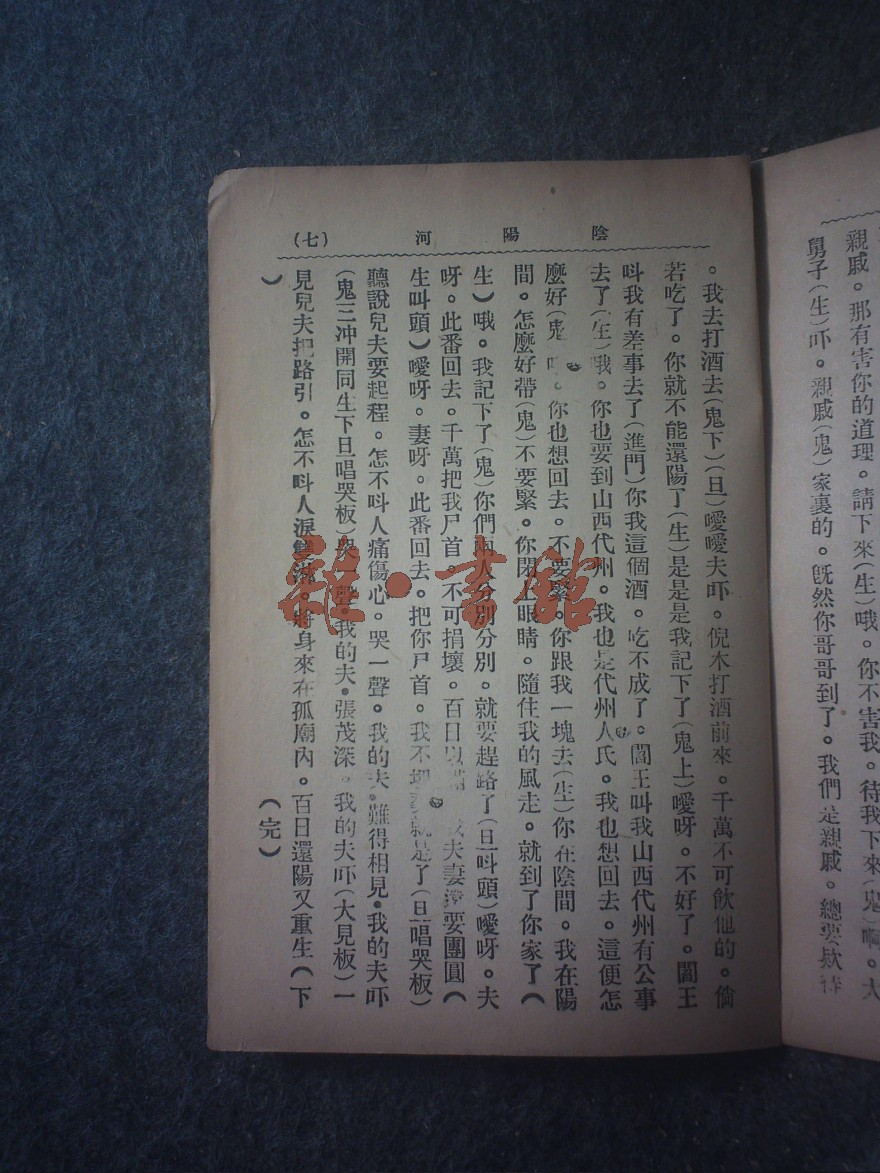 親戚。那有害你的道理。請下來(生)哦。你不害我。待我下來(鬼)啊。大
舅子(生)吓。親戚(鬼)家裏的。既然你哥哥到了。我們是親戚。總要欵待
陰陽河 (七)
。我去打酒去(鬼下)(旦)噯噯夫吓。倪木打酒前來。千萬不可飲他的。倘
若吃了。你就不能還陽了(生)是是是我記下了(鬼上)噯呀。不好了。閻王
呌我有差事去了(進門)你我這個酒。吃不成了。閻王叫我山西代州有公事
去了(生)哦。你也要到山西代州。我也是代州人氏。我也想回去。這便怎
麼好(鬼 你也想回去。不要緊。你跟我一塊去(生)你在陰間。我在陽
間。怎麼好帶(鬼)不要緊。你閉上眼睛。隨住我的風走。就到了你家了(
生)哦。我記下了(鬼)你們兩人分別分別。就要趕路了(旦呌頭)噯呀。夫
呀。此番回去。千萬把我尸首。不可損壞。百日以 夫妻還要團圓(
生叫頭)噯呀。妻呀。此番回去。把你尸首。我不 就是了(旦唱哭板)
聽說兒夫要起程。怎不呌人痛傷心。哭一聲。我的夫。難得相見。我的夫吓
(鬼三冲開同生下旦唱哭板)哭一聲。我的夫。張茂深。我的夫吓(大見板)一
見兒夫把路引。怎不呌人淚雙 。將身來在孤廟內。百日還陽又重生(下
) (完)
雜·書館